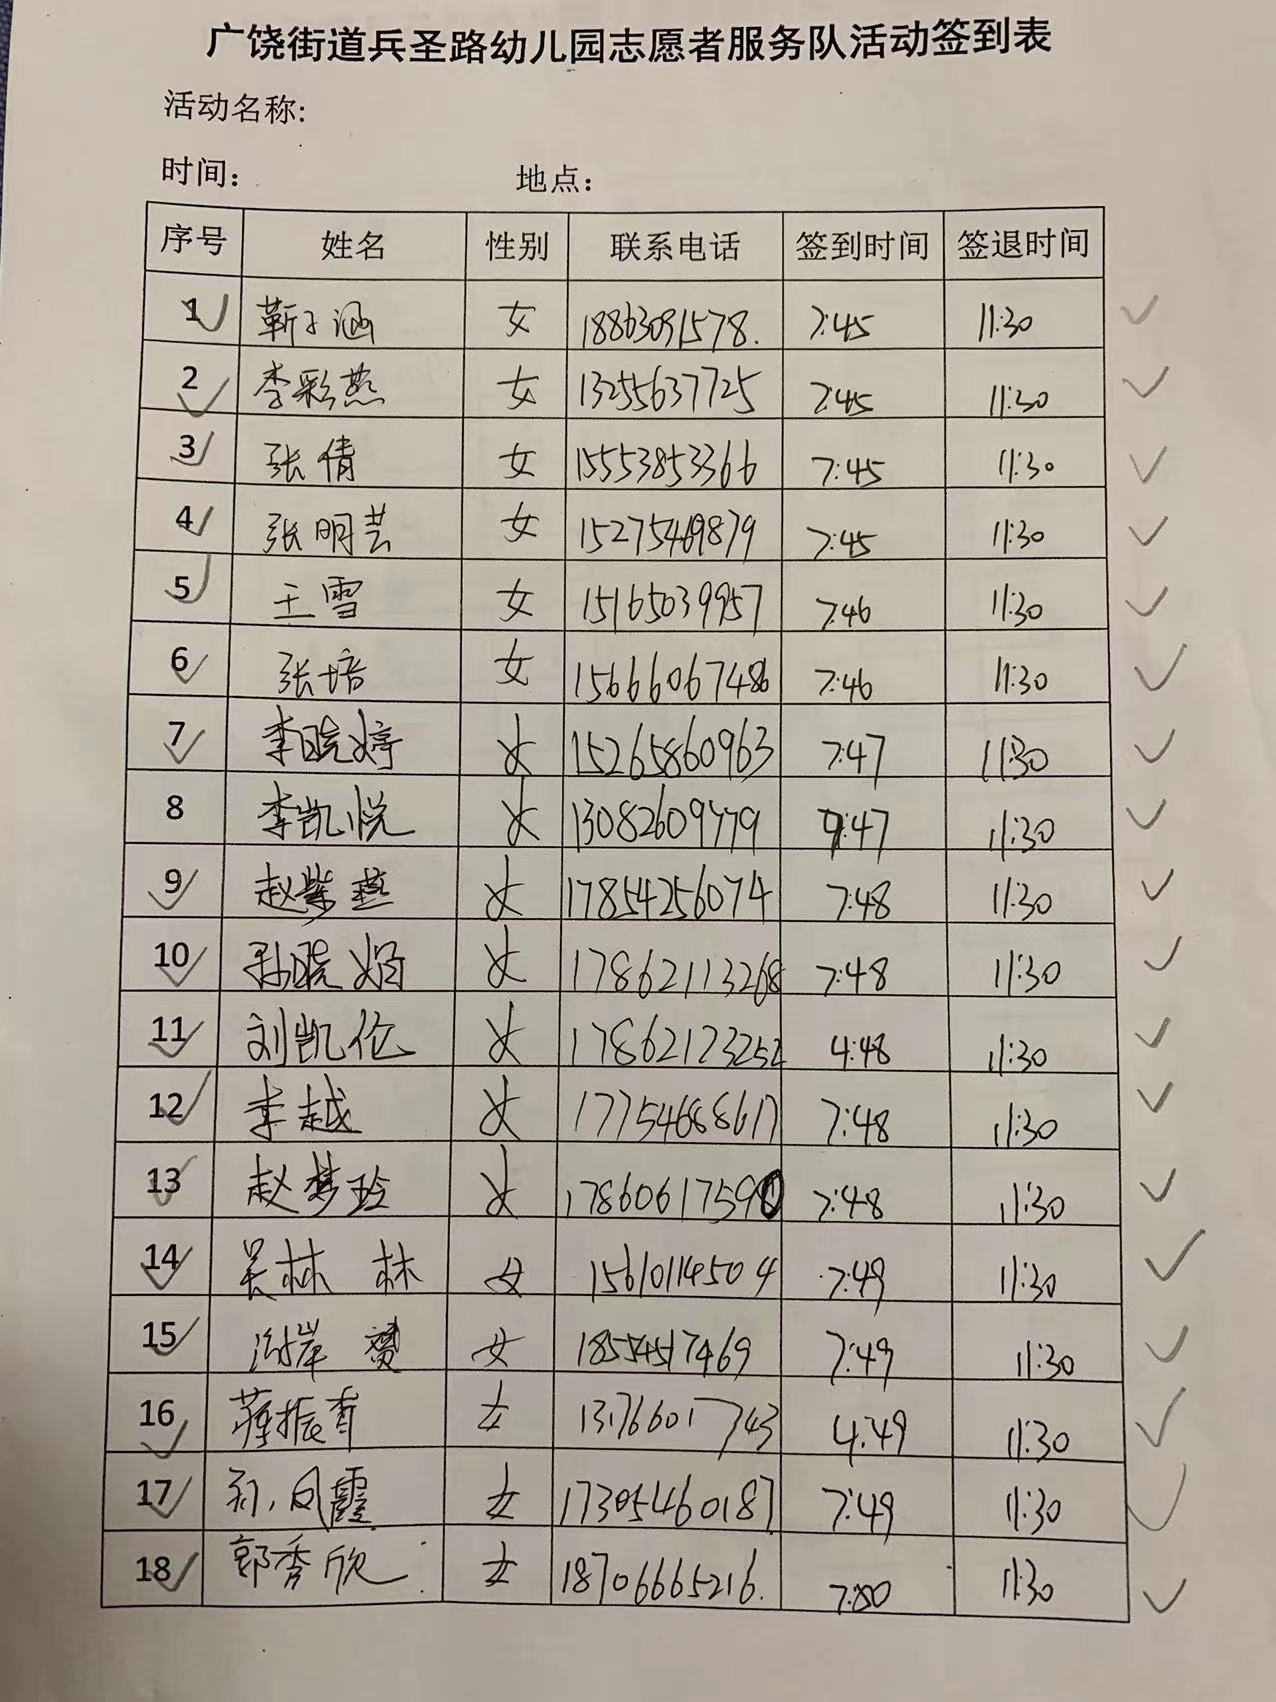 广饶街道兵圣路幼儿园志愿者服务队活动签到表
活动名称:
时间: 地点:
序号 姓名 性别 联系电话 签到时间 签退时间
1 靳子涵 女 18863091578. 7:45 11:30
2 李彩燕 女 13255637725 7:45 11:30
3 张倩 女 15553853366 7:45 11:30
4 张明芸 女 15275469879 7:45 11:30
5 王雪 女 15165039957 7:46 11:30
6 张培 女 15666067486 7:46 11:30
7 李晓婷 女 15265860963 7:47 11:30
8 李凯悦 女 13082609779 7:47 11:30
9 赵紫燕 女 17854256074 7:48 11:30
10 孙晓娟 女 17862113268 7:48 11:30
11 刘凯伦 女 17862123252 4:48 11:30
12 李越 女 17754688617 7:48 11:30
13 赵梦玲 女 17860617590 7:48 11:30
14 吴林林 女 15610114504 7:49 11:30
15 女 18554517469 7:49 11:30
16 蒋振香 女 13176601743 4:49 11:30
17 凤霞 女 17305460187 7:49 11:30
18 郭秀欣 女 18706665216. 7:50 11:30